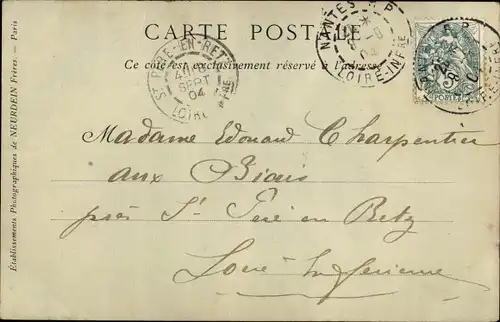 CARTE POSTALE
Ce côté est exclusivement réservé à l'adresse.
NANTES R.P
04
LOIRE-INFRE
ST PÈRE-EN-RETZ
SEPT
04
POSTES
Madame Edouard Charpentier
aux Biais
près St Père en Retz
Loire Inférieure
Établissements Photographiques de NEURDEIN Frères. — Paris